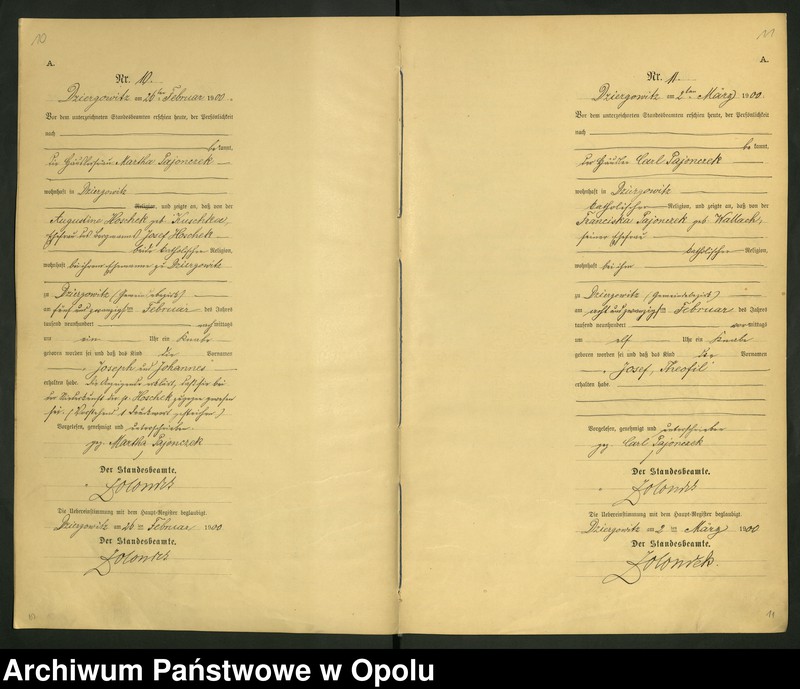 10
A.
Nr. 10.
Dziergowitz am 26ten Februar 1900.
Vor dem unterzeichneten Standesbeamten erschien heute, der Persönlichkeit
nach
be kannt,
die Häuslerfrau Martha Pajonczek
wohnhaft in Dziergowitz
Religion, und zeigte an, daß von der
Augustine Hoschek geb. Kuschka,
Ehefrau des Bergmann Josef Hoschek
beide katholischer Religion,
wohnhaft bei ihrem Ehemanne zu Dziergowitz
zu Dziergowitz (Gemeindebezirk)
am fünf und zwanzigsten Februar des Jahres
tausend neunhundert nachmittags
um ein Uhr ein Knabe
geboren worden sei und daß das Kind die Vornamen
Joseph und Johannes
erhalten habe. Die Anzeigende erklärt, daß sie bei
der Niederkunft der p. Hoschek zugegen gewesen
sei. (Vorstehend 1 Druckwort gestrichen)
Vorgelesen, genehmigt und unterschrieben
gez. Martha Pajonczek
Der Standesbeamte.
Zolondek
Die Uebereinstimmung mit dem Haupt-Register beglaubigt.
Dziergowitz am 26ten Februar 1900
Der Standesbeamte.
Zolondek
11
A.
Nr. 11.
Dziergowitz am 2ten März 1900.
Vor dem unterzeichneten Standesbeamten erschien heute, der Persönlichkeit
nach
be kannt,
der Häusler Carl Pajonczek
wohnhaft in Dziergowitz
katholischer Religion, und zeigte an, daß von der
Franciska Pajonczek geb. Wallach,
seiner Ehefrau
katholischer Religion,
wohnhaft bei ihm
zu Dziergowitz (Gemeindebezirk)
am acht und zwanzigsten Februar des Jahres
tausend neunhundert vormittags
um elf Uhr ein Knabe
geboren worden sei und daß das Kind die Vornamen
Josef, Theofil
erhalten habe
Vorgelesen, genehmigt und unterschrieben
gez. Carl Pajonczek
Der Standesbeamte.
Zolondek
Die Uebereinstimmung mit dem Haupt-Register beglaubigt.
Dziergowitz am 2ten März 1900
Der Standesbeamte.
Zolondek.
11
Archiwum Państwowe w Opolu